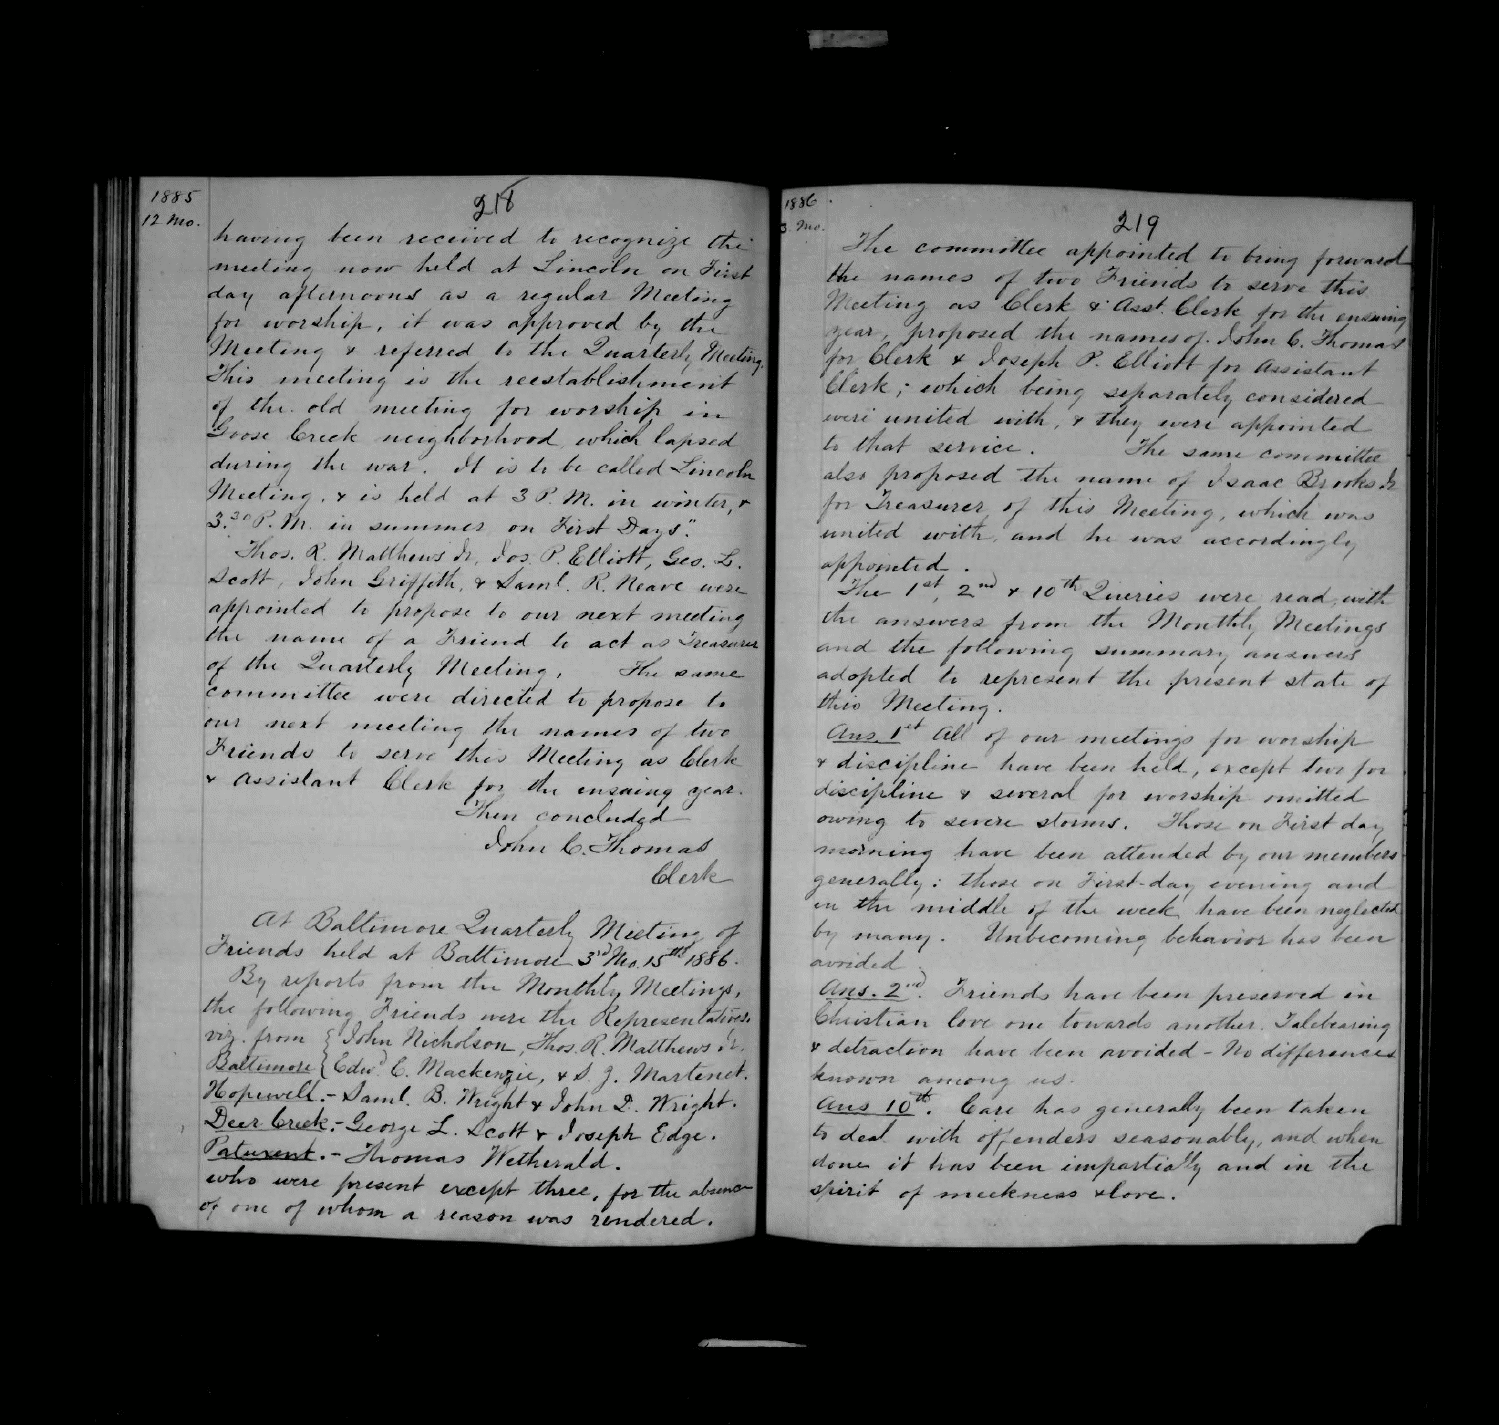 1885
12 Mo.
218
having been received to recognize the
meeting now held at Lincoln on First
day afternoons as a regular Meeting
for worship, it was approved by the
Meeting & referred to the Quarterly Meeting.
This meeting is the reestablishment
of the old meeting for worship in
Goose Creek neighborhood which lapsed
during the war. It is to be called Lincoln
Meeting, & is held at 3 P.M. in winter, &
3.30 P.M. in summer on First Days".
Thos. R. Matthews Jr, Jos. P. Elliott, Geo. L.
Scott, John Griffith, & Saml. R. Neave were
appointed to propose to our next meeting
the name of a Friend to act as Treasurer
of the Quarterly Meeting. The same
committee were directed to propose to
our next meeting the names of two
Friends to serve this Meeting as Clerk
& Assistant Clerk for the ensuing year.
Then concluded
John C. Thomas
Clerk
At Baltimore Quarterly Meeting of
Friends held at Baltimore 3rd Mo. 15th 1886.
By reports from the Monthly Meetings,
the following Friends were the Representatives.
viz. from { John Nicholson, Thos. R. Matthews Jr.
Baltimore { Edwd. C. Mackenzie, & S. J. Martenet.
Hopewell.- Saml. B. Wright & John D. Wright.
Deer Creek.- George L. Scott & Joseph Edge.
Patuxent.- Thomas Wetherald.
who were present except three, for the absence
of one of whom a reason was rendered.
1886.
3. Mo.
219
The committee appointed to bring forward
the names of two Friends to serve this
Meeting as Clerk & Asst. Clerk for the ensuing
year, proposed the names of John C. Thomas
for Clerk & Joseph P. Elliott for Assistant
Clerk; which being separately considered
were united with, & they were appointed
to that service. The same committee
also proposed the name of Isaac Brooks Jr
for Treasurer of this Meeting, which was
united with, and he was accordingly
appointed.
The 1st, 2nd & 10th Queries were read, with
the answers from the Monthly Meetings
and the following summary answers
adopted to represent the present state of
this Meeting.
Ans. 1st All of our meetings for worship
& discipline have been held, except two for
discipline & several for worship omitted
owing to severe storms. Those on First day
morning have been attended by our members
generally: those on First-day evening and
in the middle of the week have been neglected
by many. Unbecoming behavior has been
avoided
Ans. 2nd. Friends have been preserved in
Christian love one towards another. Talebearing
& detraction have been avoided - No differences
known among us.
Ans 10th. Care has generally been taken
to deal with offenders seasonably, and when
done it has been impartially and in the
spirit of meekness & love.